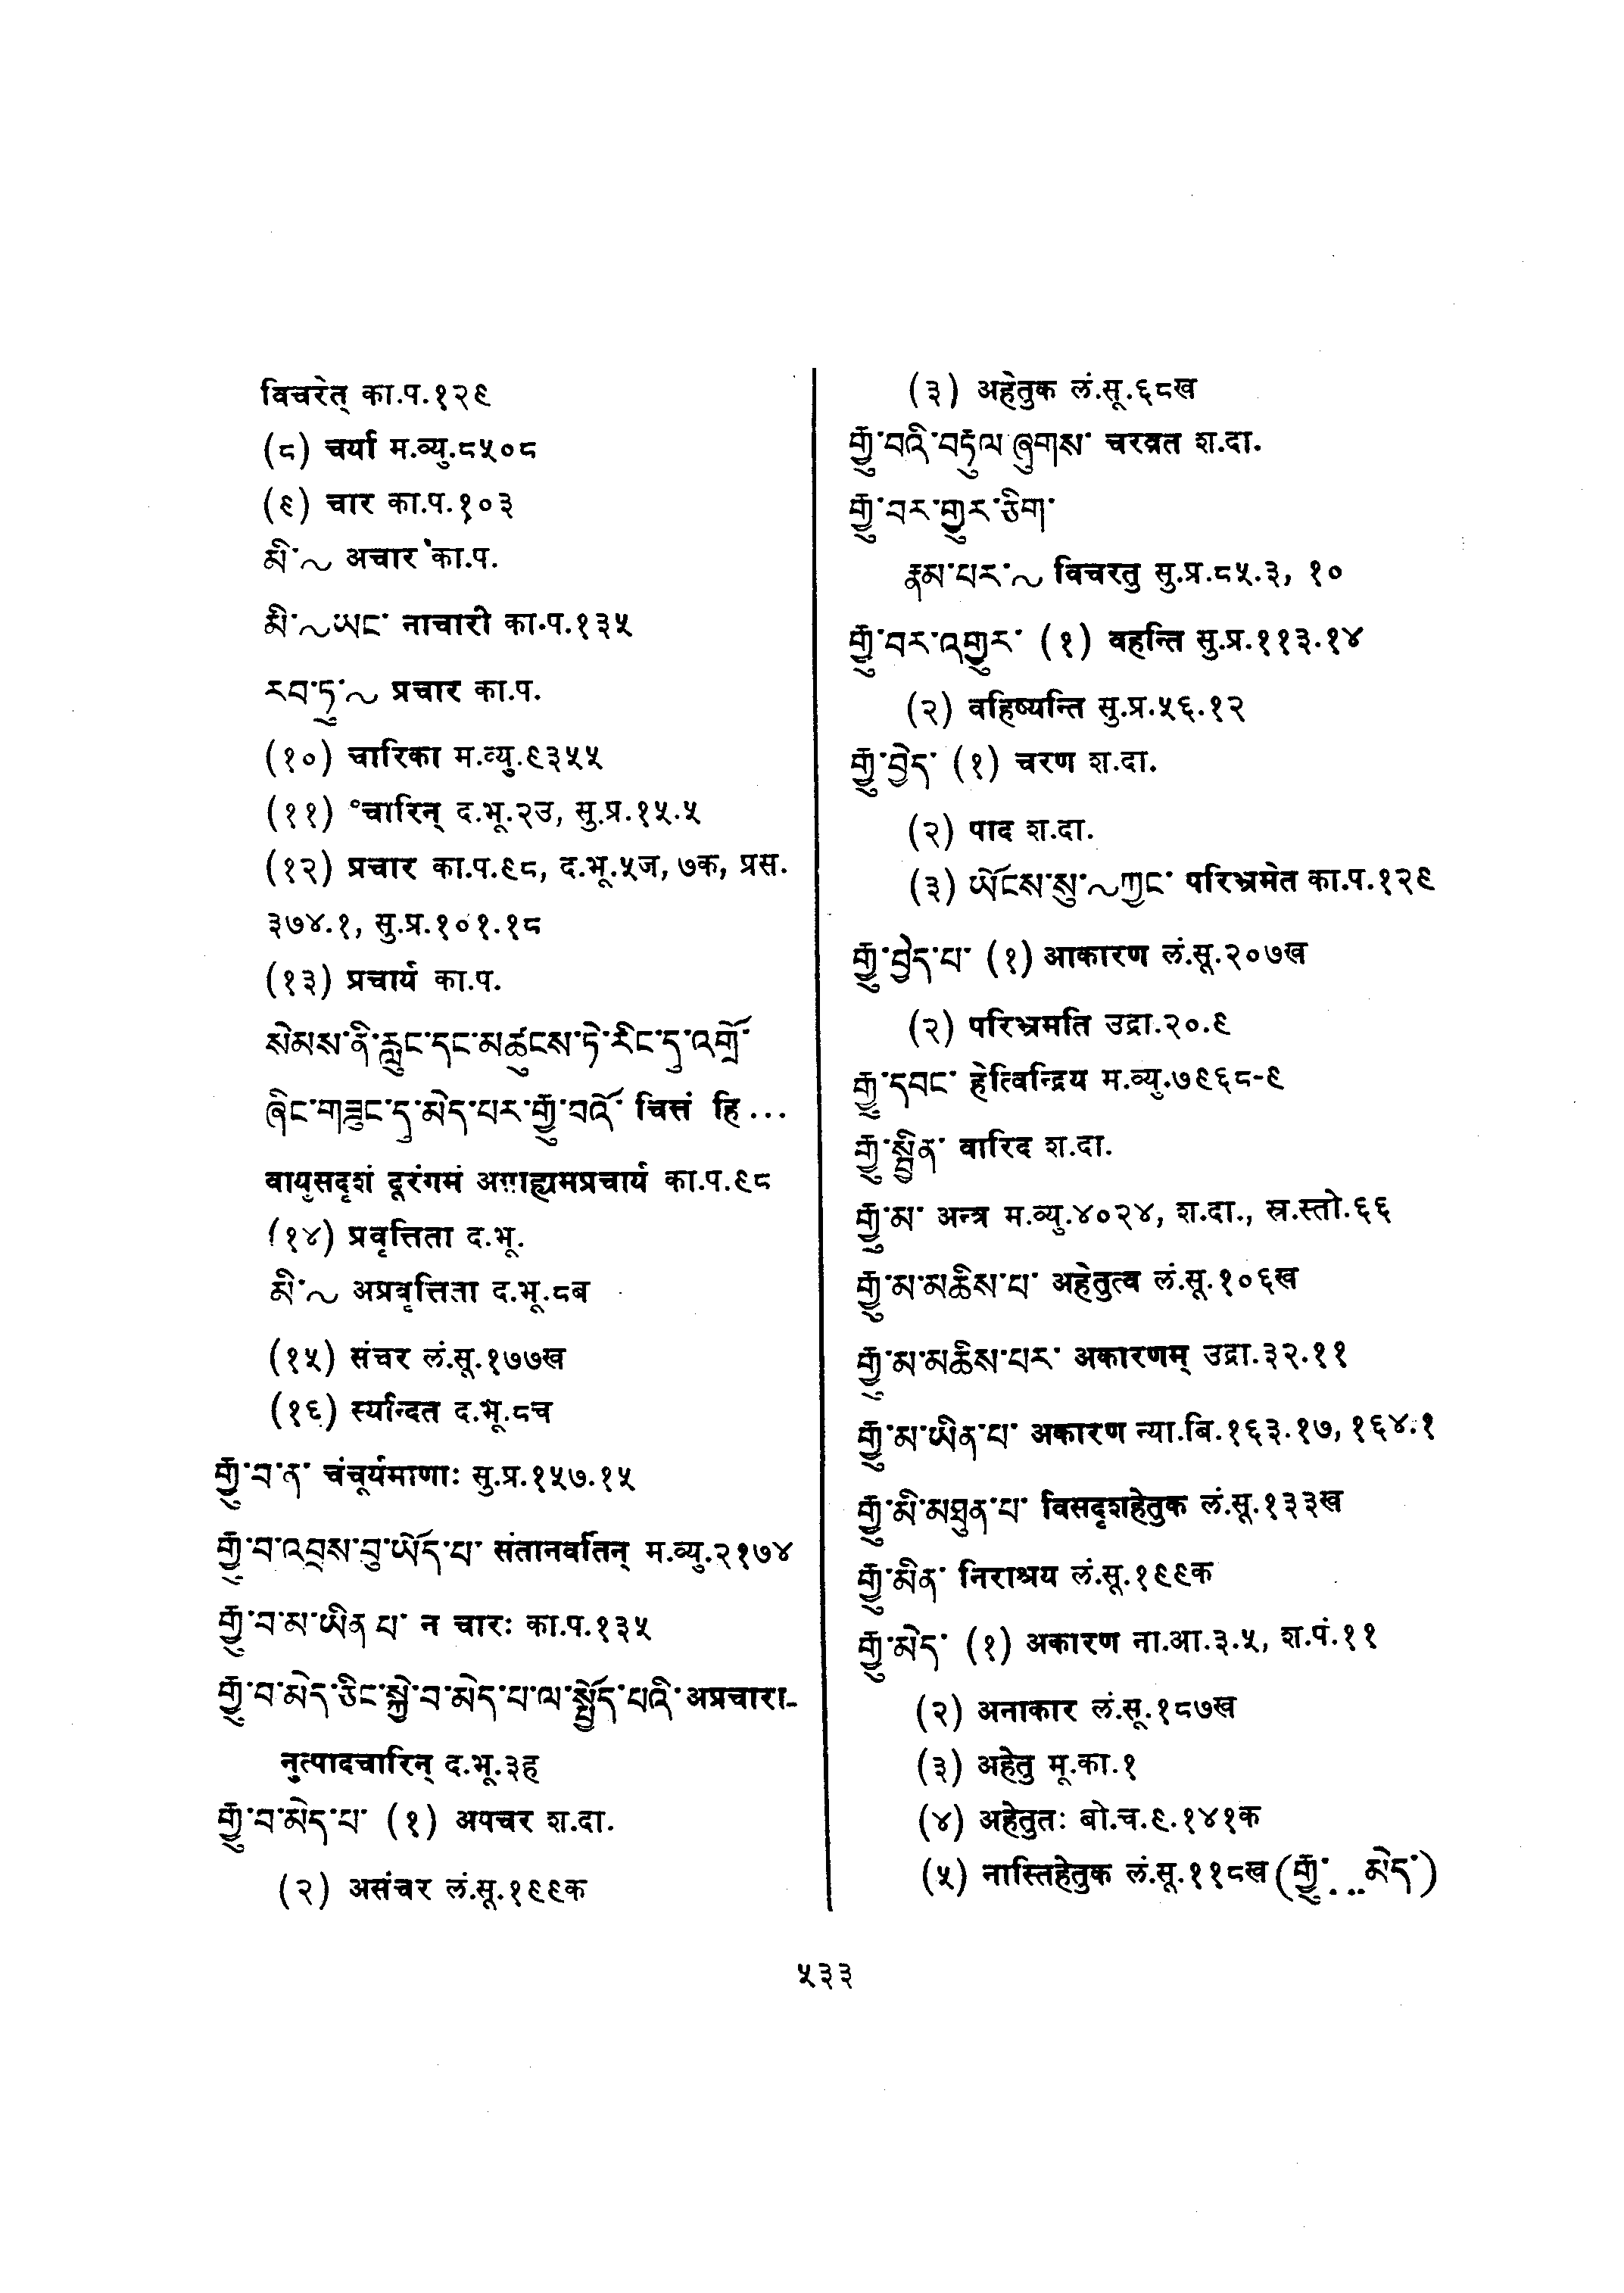 विचरेत् का.प.१२९
(८) चर्या म.व्यु.८५०८
(९) चार का.प.१०३
མི་~ अचार का.प.
མི་~ཡང་ नाचारी का.प.१३५
རབ་ཏུ་~ प्रचार का.प.
(१०) चारिका म.व्यु.९३५५
(११) °चारिन् द.भू.२उ, सु.प्र.१५.५
(१२) प्रचार का.प.९८, द.भू.५ज, ७क, प्रस.
३७४.१, सु.प्र.१०१.१८
(१३) प्रचार्य का.प.
སེམས་ནི་རླུང་དང་མཚུངས་ཏེ་རིང་དུ་འགྲོ་
ཞིང་གཟུང་དུ་མེད་པར་རྒྱུ་བའོ་ चित्तं हि ...
वायुसदृशं दूरंगमं अग्राह्यमप्रचार्य का.प.९८
(१४) प्रवृत्तिता द.भू.
མི་~ अप्रवृत्तिता द.भू.८ब
(१५) संचर लं.सू.१७७ख
(१६) स्यन्दित द.भू.८च
རྒྱུ་བ་ན་ चंचूर्यमाणाः सु.प्र.१५७.१५
རྒྱུ་བ་འབྲས་བུ་ཡོད་པ་ संतानवर्तिन् म.व्यु.२१७४
རྒྱུ་བ་མ་ཡིན་པ་ न चारः का.प.१३५
རྒྱུ་བ་མེད་ཅིང་སྐྱེ་བ་མེད་པ་ལ་སྤྱོད་པའི་ अप्रचारा-
नुत्पादचारिन् द.भू.३ह
རྒྱུ་བ་མེད་པ་ (१) अपचर श.दा.
(२) असंचर लं.सू.१९९क
(३) अहेतुक लं.सू.६८ख
རྒྱུ་བའི་བརྟུལ་ཞུགས་ चरव्रत श.दा.
རྒྱུ་བར་གྱུར་ཅིག་
རྣམ་པར་~ विचरतु सु.प्र.८५.३, १०
རྒྱུ་བར་འགྱུར་ (१) वहन्ति सु.प्र.११३.१४
(२) वहिष्यन्ति सु.प्र.५६.१२
རྒྱུ་བྱེད་ (१) चरण श.दा.
(२) पाद श.दा.
(३) ཡོངས་སུ་~ཀྱང་ परिभ्रमेत का.प.१२९
རྒྱུ་བྱེད་པ་ (१) आकारण लं.सू.२०७ख
(२) परिभ्रमति उद्रा.२०.९
རྒྱུ་དབང་ हेत्विन्द्रिय म.व्यु.७९६८-९
རྒྱུ་སྦྱིན་ वारिद श.दा.
རྒྱུ་མ་ अन्त्र म.व्यु.४०२४, श.दा., स्र.स्तो.६६
རྒྱུ་མ་མཆིས་པ་ अहेतुत्व लं.सू.१०६ख
རྒྱུ་མ་མཆིས་པར་ अकारणम् उद्रा.३२.११
རྒྱུ་མ་ཡིན་པ་ अकारण न्या.बि.१६३.१७, १६४.१
རྒྱུ་མི་མཐུན་པ་ विसदृशहेतुक लं.सू.१३३ख
རྒྱུ་མིན་ निराश्रय लं.सू.१९९क
རྒྱུ་མེད་ (१) अकारण ना.आ.३.५, श.पं.११
(२) अनाकार लं.सू.१८७ख
(३) अहेतु मू.का.१
(४) अहेतुतः बो.च.९.१४१क
(५) नास्तिहेतुक लं.सू.११८ख (རྒྱུ་...མེད་)
५३३